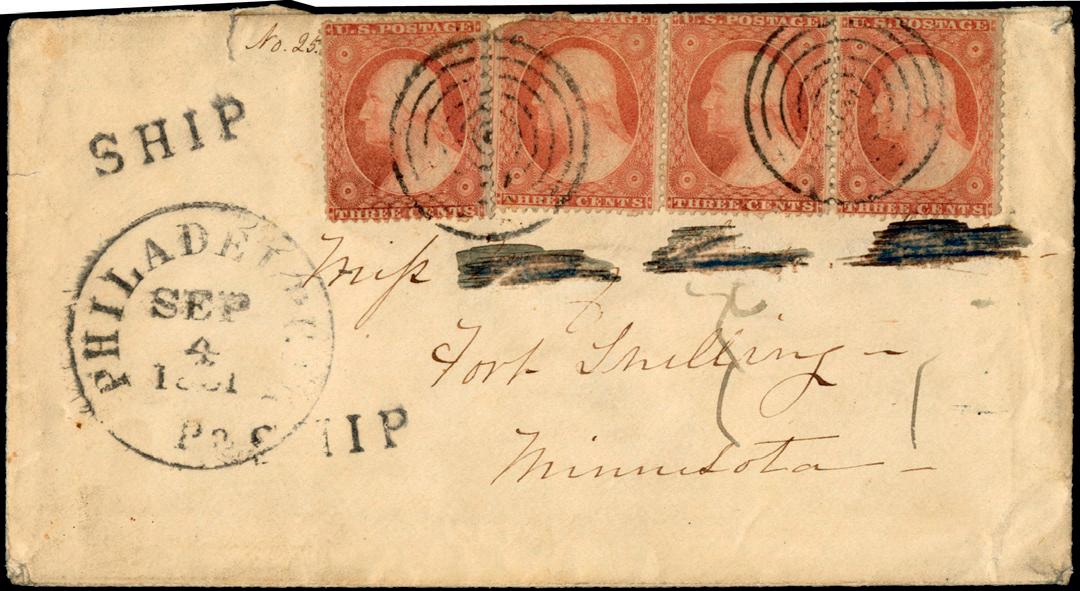 No. 25.
U.S. POSTAGE U.S. POSTAGE U.S. POSTAGE U.S. POSTAGE
THREE CENTS THREE CENTS THREE CENTS THREE CENTS
SHIP
PHILADELPHIA
SEP
4
1861
Pa
SHIP
Miss
Fort Snelling -
Minnesota -